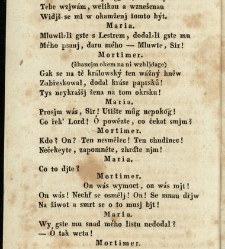 Tebe wzjwám, welikau a wznešenau
Widjš se mi w okamženj tomto býti.
Maria.
Mluwil-li gste s Lestrem, dodal-li gste mu
Mého psanj, daru mého — Mluwte, Sir!
Mortimer.
okem na ni
Gak se na té králowský ten wážný hněw
Zabieskowal, dodal kráse
Tys neykrašší žena na tom okrsku.
Maria.
Prosjm wás, Sir! Utište můg nepokog!
Co řek' Lord! Ó powězte, co čekat smjm?
Mortimer.
Kdo? On? Ten nesmělec! Ten chudinec!
Nečekeyte, zapomněte, zhrďte njm!
Maria.
Co to djte?
Mortimer.
On wás wymoct, on wás mjt!
On wás! Nechť se osmělj! On! Se mnau
Na žiwot a smrt se o to musj bjt!
Maria.
Wy gste mu snad mého listu nedodal?
— O tak weta!
Mortimer.